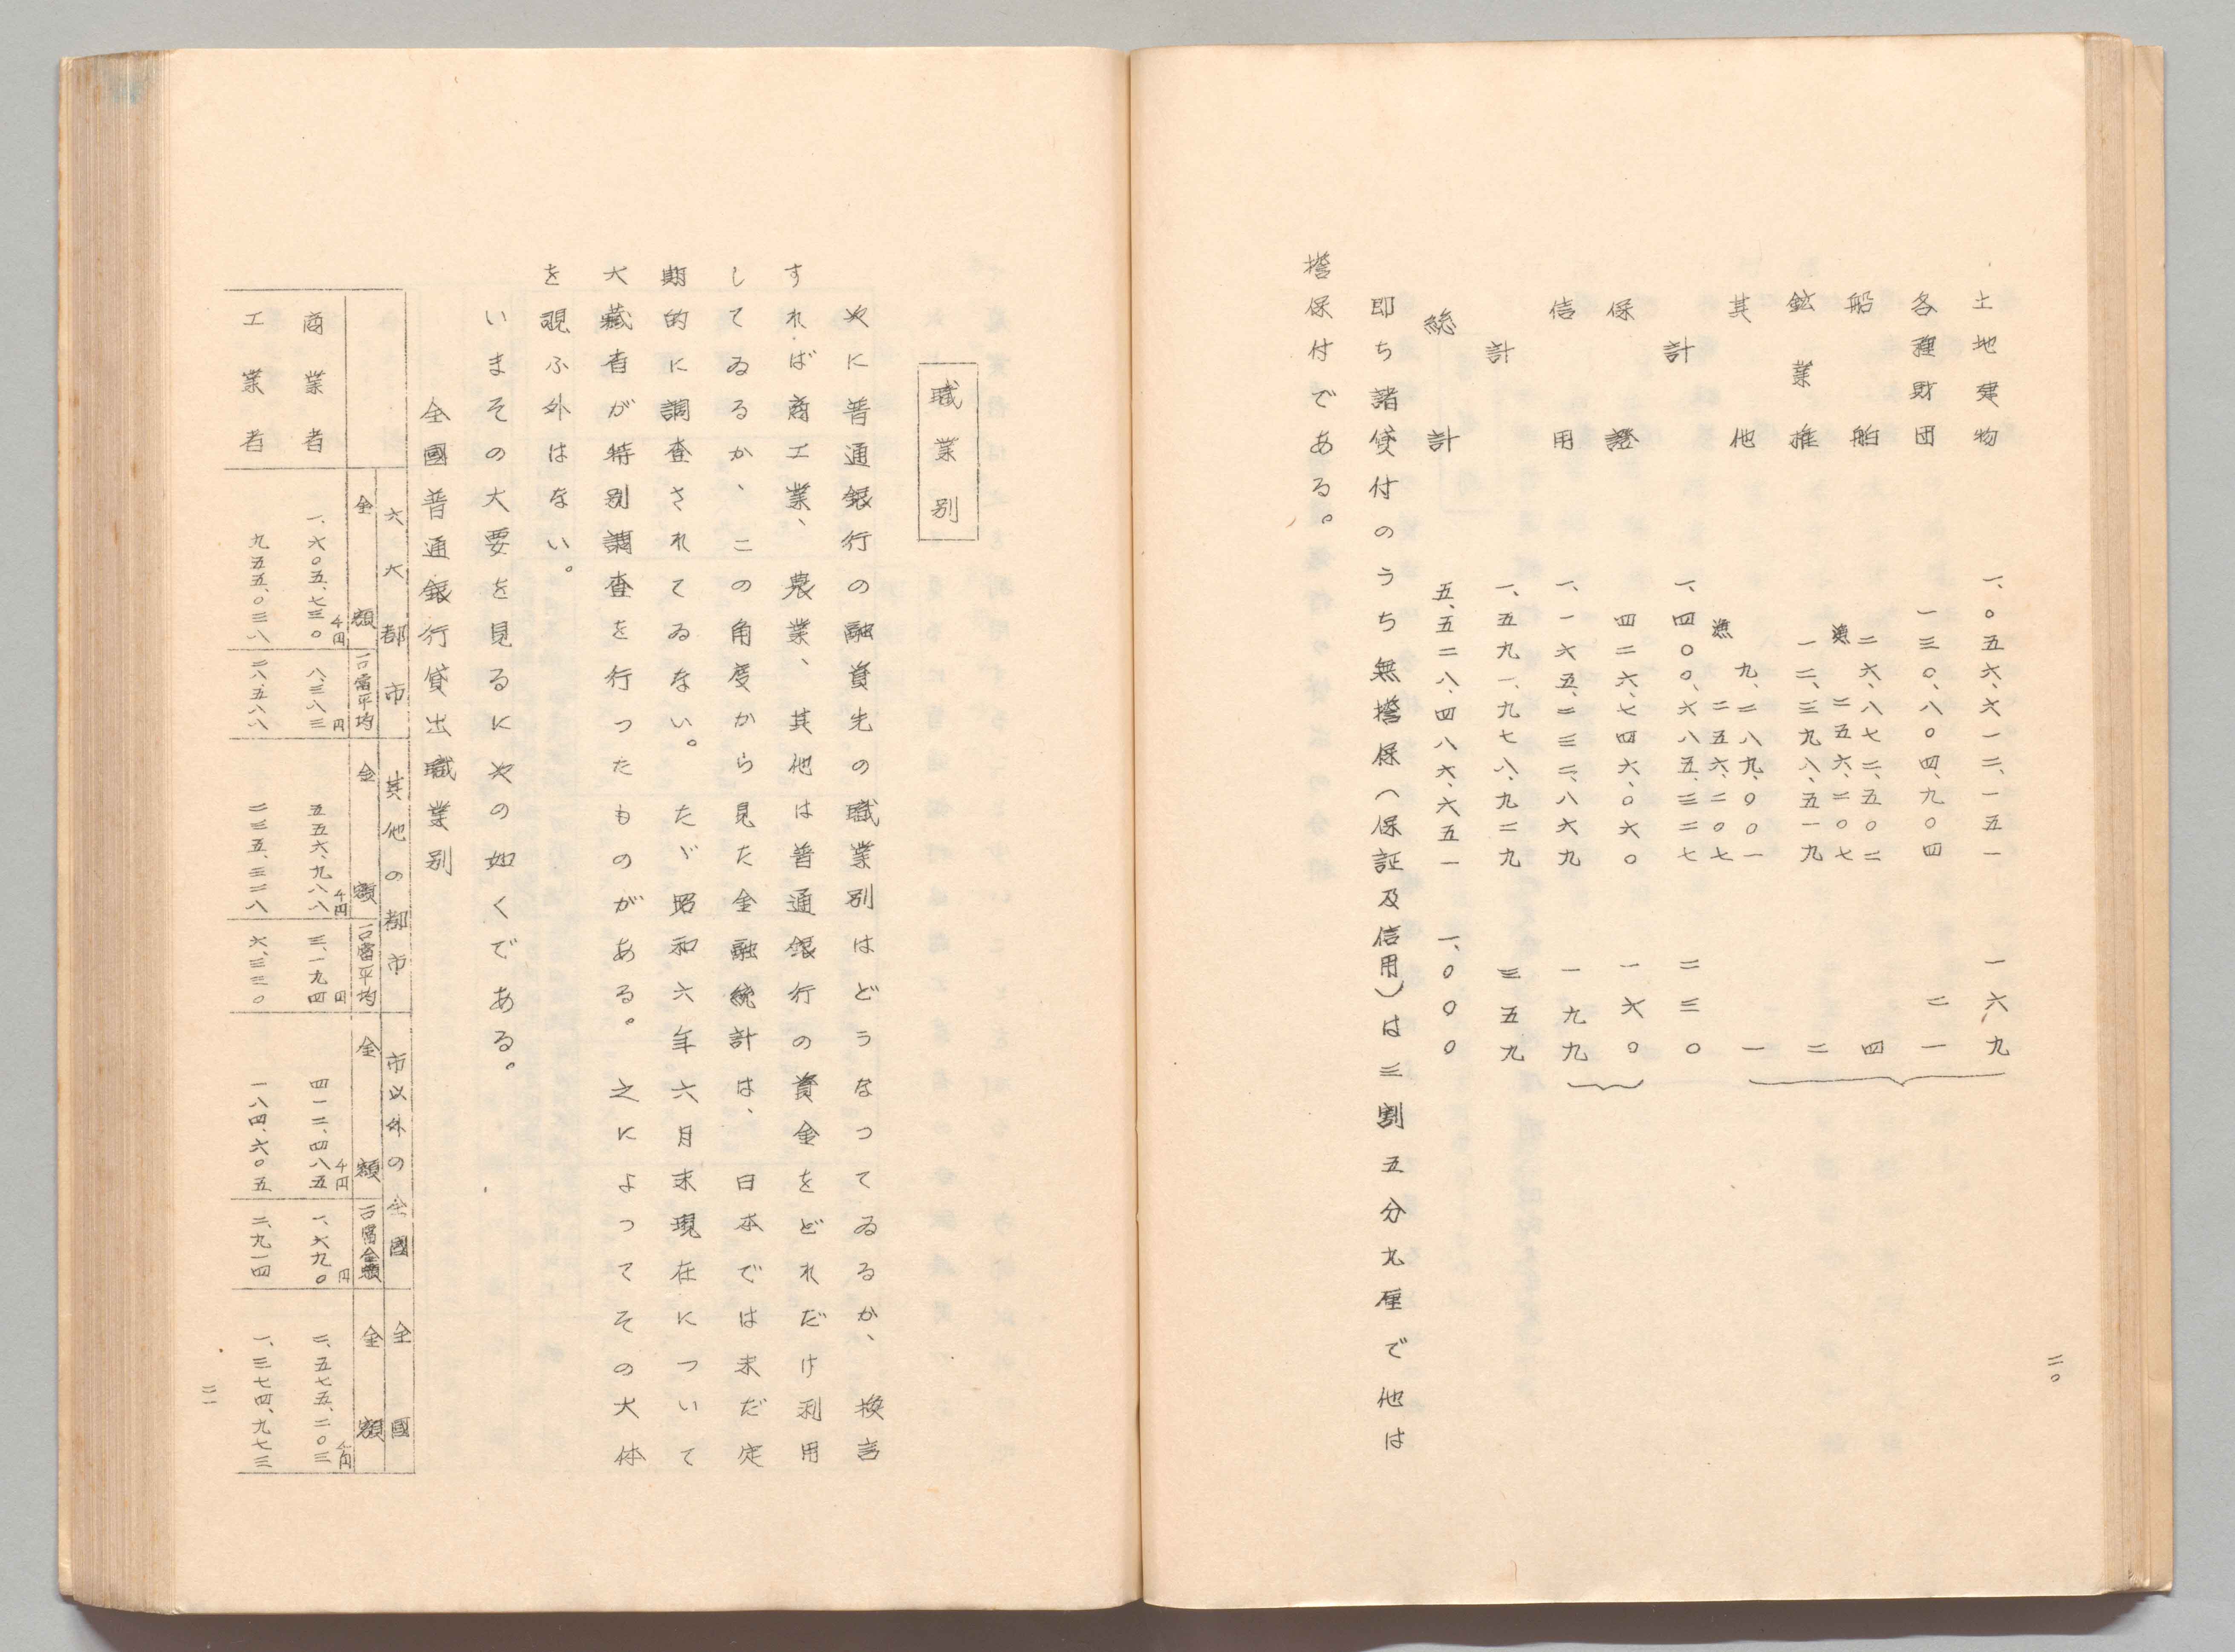 二〇
土地建物 一、〇五六、六一二、一五一 一六九
各種財団 一三〇、八〇四、九〇四 二一
船舶 二六、八七二、五〇二 四
漁 二五六、二〇七
鉱業権 一二、三九八、五一九 二
其他 九、二八九、〇〇一 一
漁 二五六、二〇七
計 一、四〇〇、六八五、三二七 二三〇
保證 四二六、七四六、〇六〇 一六〇
信用 一、一六五、二三二、八六九 一九九
計 一、五九一、九七八、九二九 三五九
総計 五、五二八、四八六、六五一 一、〇〇〇
即ち諸貸付のうち無擔保（保証及信用）は三割五分九厘で他は
擔保付である。
職業別
次に普通銀行の融資先の職業別はどうなつてゐるか、換言
すれば商工業、農業、其他は普通銀行の資金をどれだけ利用
してゐるか、この角度から見た金融統計は、日本では未だ定
期的に調査されてゐない。たゞ昭和六年六月末現在について
大藏省が特別調査を行つたものがある。之によつてその大体
を覗ふ外はない。
いまその大要を見るに次の如くである。
全國普通銀行貸出職業別
六大都市 其他の都市 市以外の全國 全國
金額 一口當平均 金額 一口當平均 金額 一口當金額 金額
千円 円 千円 円 千円 円 千円
商業者 一、六〇五、七三〇 八、三八三 五五六、九八八 三、一九四 四一二、四八五 一、六九〇 二、五七五、二〇三
工業者 九五五、〇三八 二八、五八八 二三五、三二八 六、三三〇 一八四、六〇五 二、九一四 一、三七四、九七三
二一